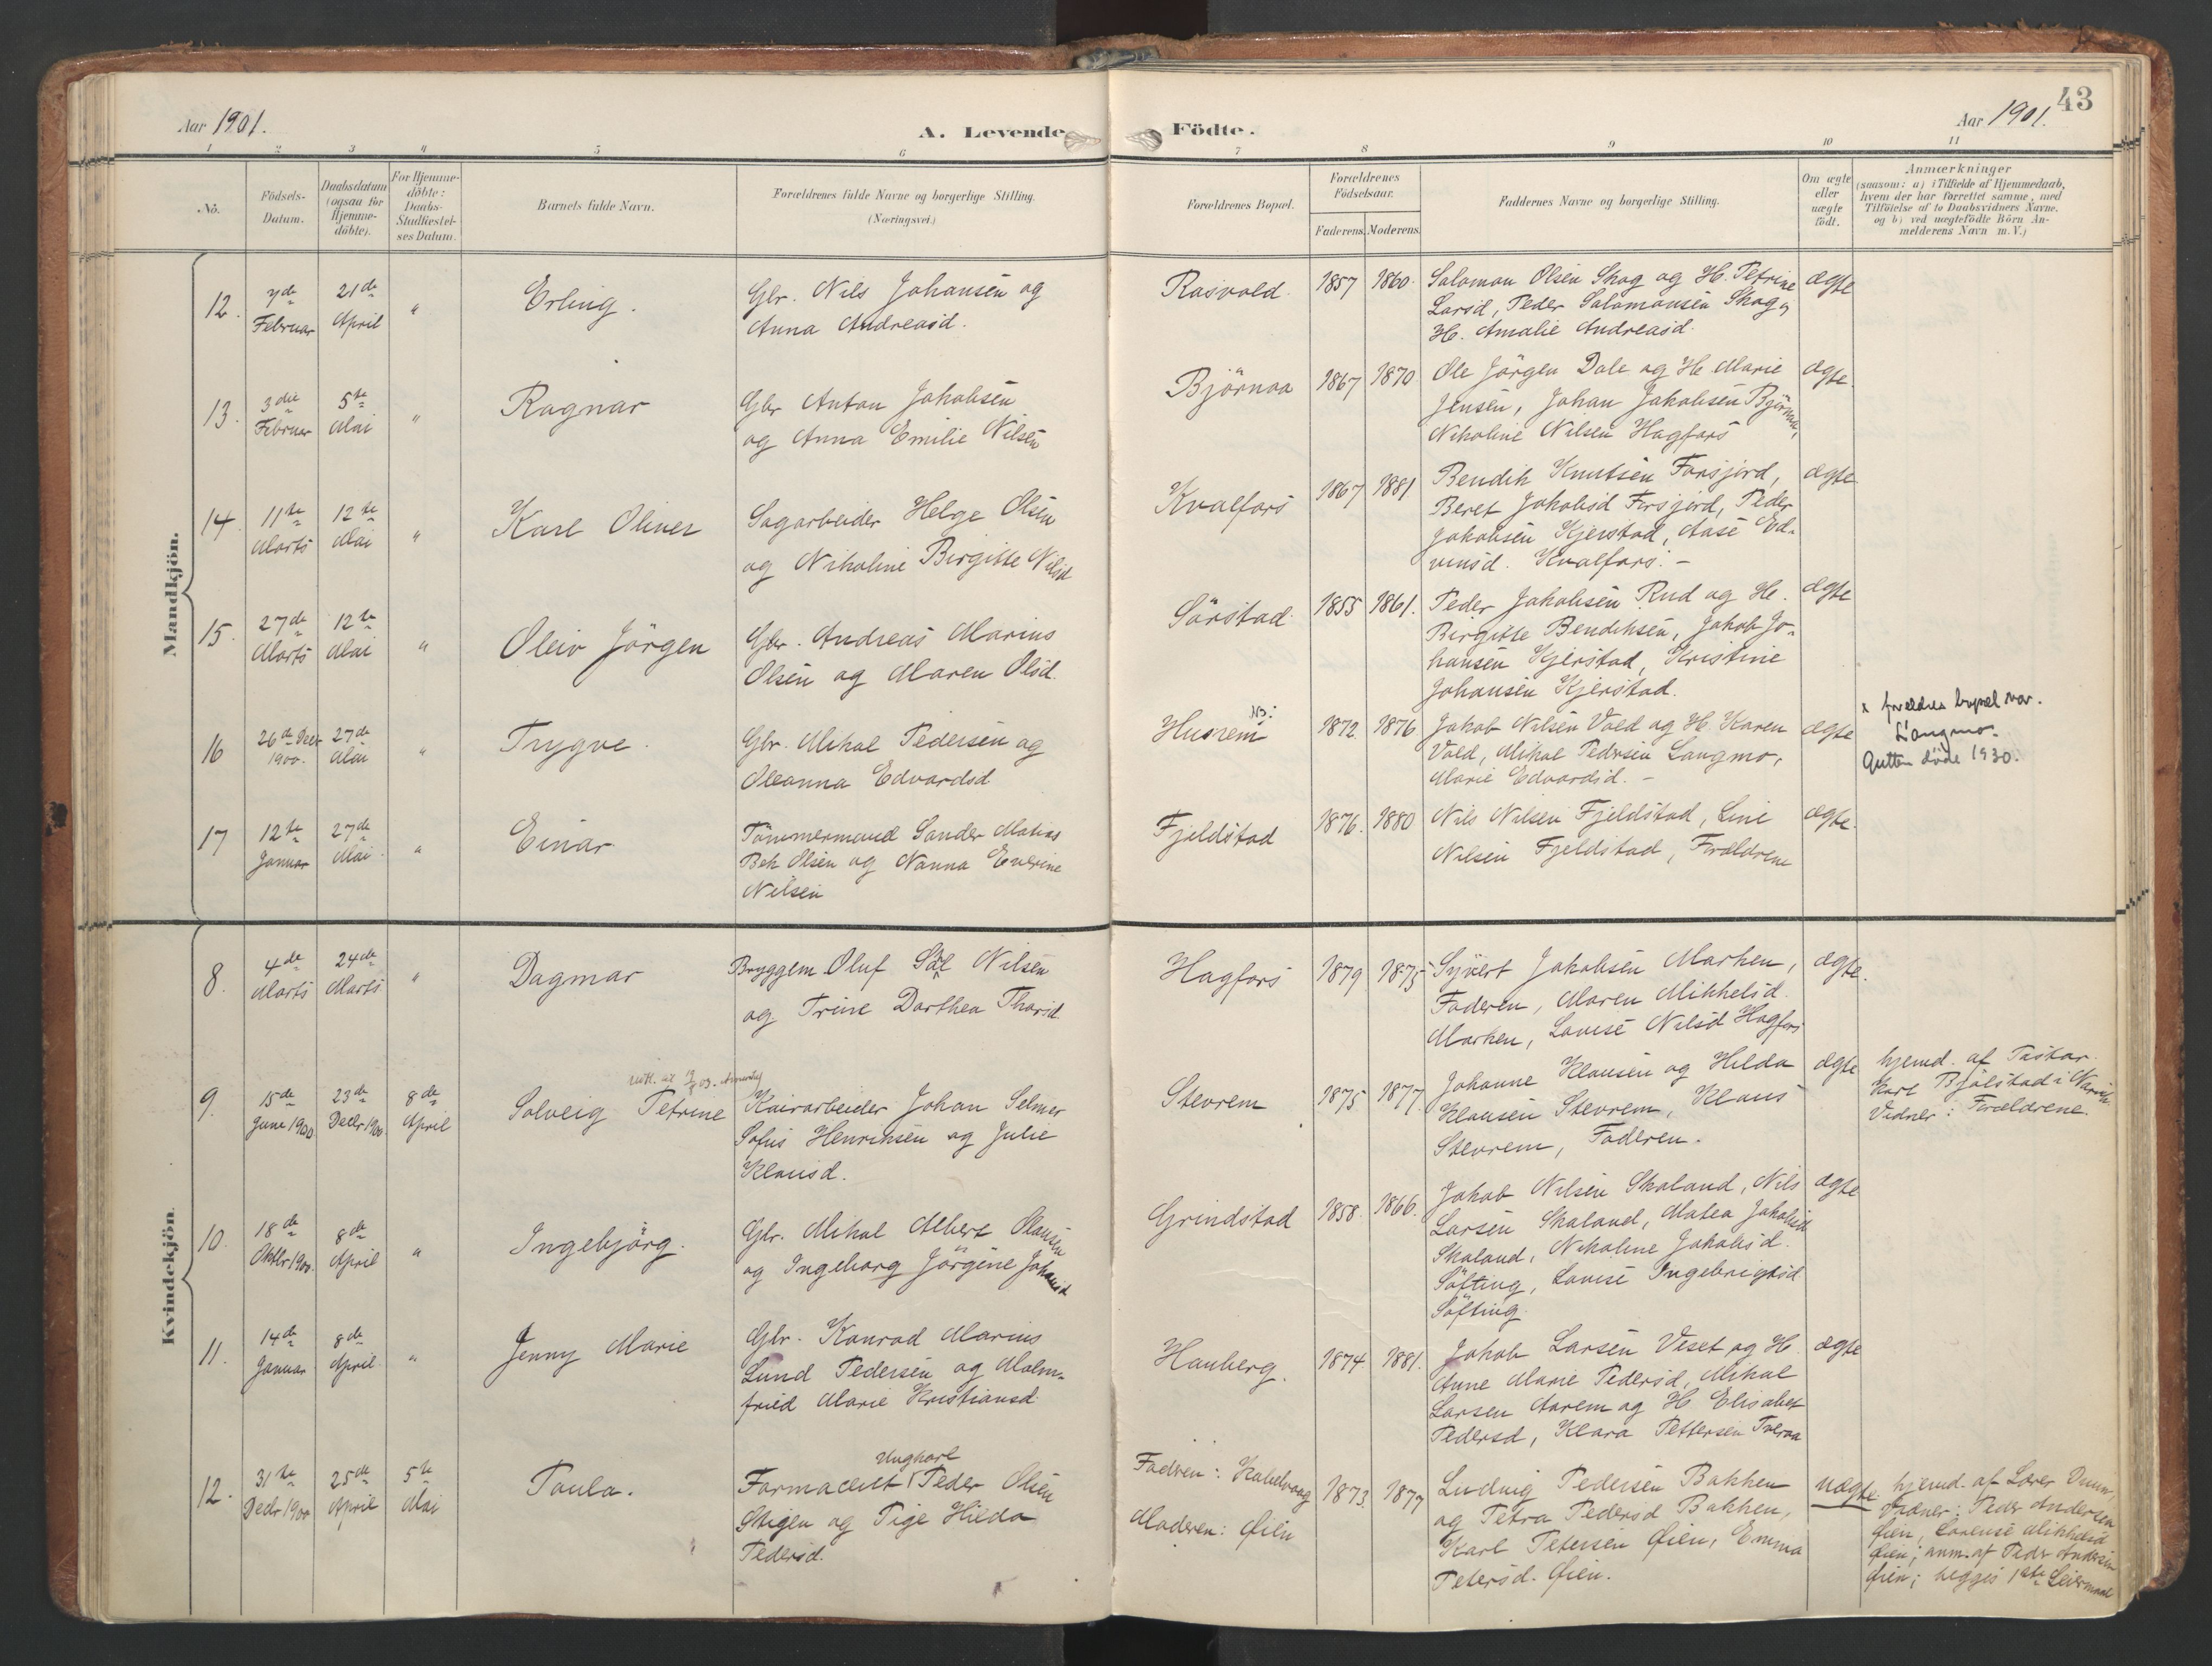 43
Aar 1901.
A. Levende Födte.
Aar 1901.
1 2 3 4 5 6 7 8 9 10 11
No.
Födsels-
Datum.
Daabsdatum
(ogsaa for
Hjemme-
döbte).
For Hjemme-
döbte:
Daabs-
Stadfæstel-
ses Datum.
Barnets fulde Navn.
Forældrenes fulde Navne og borgerlige Stilling.
(Næringsvei.)
Forældrenes Bopæl.
Forældrenes
Födselsaar.
Faderens. Moderens.
Faddernes Navne og borgerlige Stilling.
Om ægte
eller
uægte
födt.
Anmærkninger
(saasom: a) i Tilfælde af Hjemmedaab,
hvem der har forrettet samme, med
Tilföielse af to Daabsvidners Navne.
og b) ved uægtefödte Börn An-
melderens Navn m. V.)
Mandkjön.
12.
7de
Februar
21de
April
"
Erling.
Gbr. Nils Johansen og
Anna Andreasd.
Rosvold.
1857 1860.
Salomon Olsen Skog og H. Petrine
Larsd, Peder Salomonsen Skog,
H. Amalie Andreasd.
ægte
13.
3die
Februar
5te
Mai
"
Ragnar
Gbr Anton Jakobsen
og Anna Emilie Nilsen
Björnaa
1867 1870
Ole Jörgen Dale og H. Marie
Jensen, Johan Jakobsen Björnaa,
Nikoline Nilsen Hagfors
ægte.
14.
11te
Marts
12te
Mai
"
Karl Oliver
Sagarbeider Helge Olsen
og Nikoline Birgitte Nilsd
Kvalfors
1867 1881
Bendik Knutsen Forsjord,
Beret Jakobsd Forsjord, Peder
Jakobsen Kjerstad, Aase Ed-
vinsd. Kvalfors. -
ægte
15.
27de
Marts
12te
Mai
"
Oleiv Jörgen
Gbr. Andreas Marius
Olsen og Maren Olsd.
Sörstad.
1855 1861.
Peder Jakobsen Rud og H.
Birgitte Bendiksen, Jakob Jo-
hansen Kjerstad, Kristine
Johansen Kjerstad.
ægte
16
26de Decbr
1900.
27de
Mai
"
Trygve.
Gbr. Mikal Pedersen og
Oleanna Edvardsd
NB.
Husrem
1872 1876
Jakob Nilsen Vold og H. Karen
Vold, Mikal Pedersen Langmo,
Marie Edvardsd. -
ægte
x foreldres bopæl var.
Langmo.
Gutten döde 1930.
17
12te
Januar
27de
Mai.
"
Einar
Tömmermand Sander Matias
Bek Olsen og Nanna Everine
Nilsen
Fjeldstad
1876. 1880
Nils Nilsen Fjeldstad, Line
Nilsen Fjeldstad, Forældrene
ægte.
Kvindekjön.
8.
4de
Marts
24de
Marts
"
Dagmar
Bryggem Oluf Nilsen
og Trine Dorthea Thorsd.
Hagfors
1879 1875
Syvert Jakobsen Marken,
Faderen, Maren Mikkelsd.
Marken, Lovise Nilsd Hagfors
ægte.
9.
15de
Juni 1900
23de
Decbr 1900.
8de
April
Solveig Petrine
Kaiarbeider Johan Selmer
Sofus Henriksen og Julie
Klausd.
Stevrem
1875 1877.
Johanne Klausen og Hilda
Klausen Stevrem, Klaus
Stevrem, Faderen.
ægte
hjemd. af Pastor
Karl Bjölstad i Narvik.
Vidner: Forældrene.
10.
18de
Oktbr 1900.
8de
April
"
Ingebjörg.
Gbr. Mikal Albert Olausen
og Ingeborg Jörgine Johansd
Grindstad
1858. 1866.
Jakob Nilsen Skaland, Nils
Larsen Skaland, Matea Jakobsd
Skaland, Nikoline Jakobsd.
Söfting, Lovise Ingebrigtsd
Söfting.
ægte
11.
14de
Januar
8de
April
"
Jenny Marie
Gbr. Konrad Marius
Lund Pedersen og Malm-
fried Marie Kristiansd.
Hauberg.
1874 1881.
Jakob Larsen Veset og H.
Anne Marie Pedersd, Mikal
Larsen Aarem og H. Elisabet
Pedersd, Klara Pettersen Tveraa
ægte
12.
31te
Decbr 1900
25de
April
5te
Mai
Paula.
Ungkarl
Farmaceut Peder Olsen
Stigen og Pige Hilda
Pedersd.
Faderen:
Moderen: Öien
1873. 1877
Ludvig Pedersen Bakken
og Petra Pedersd Bakken,
Karl Petersen Öien, Emma
Petersd. Öien.
uægte.
hjemd. af Lærer
Vidner: Peder Andersen
Öien, Lorense Mikkelsd
Öien; anm. af Peder Andersen
Öien; begges 1ste Leiermaal